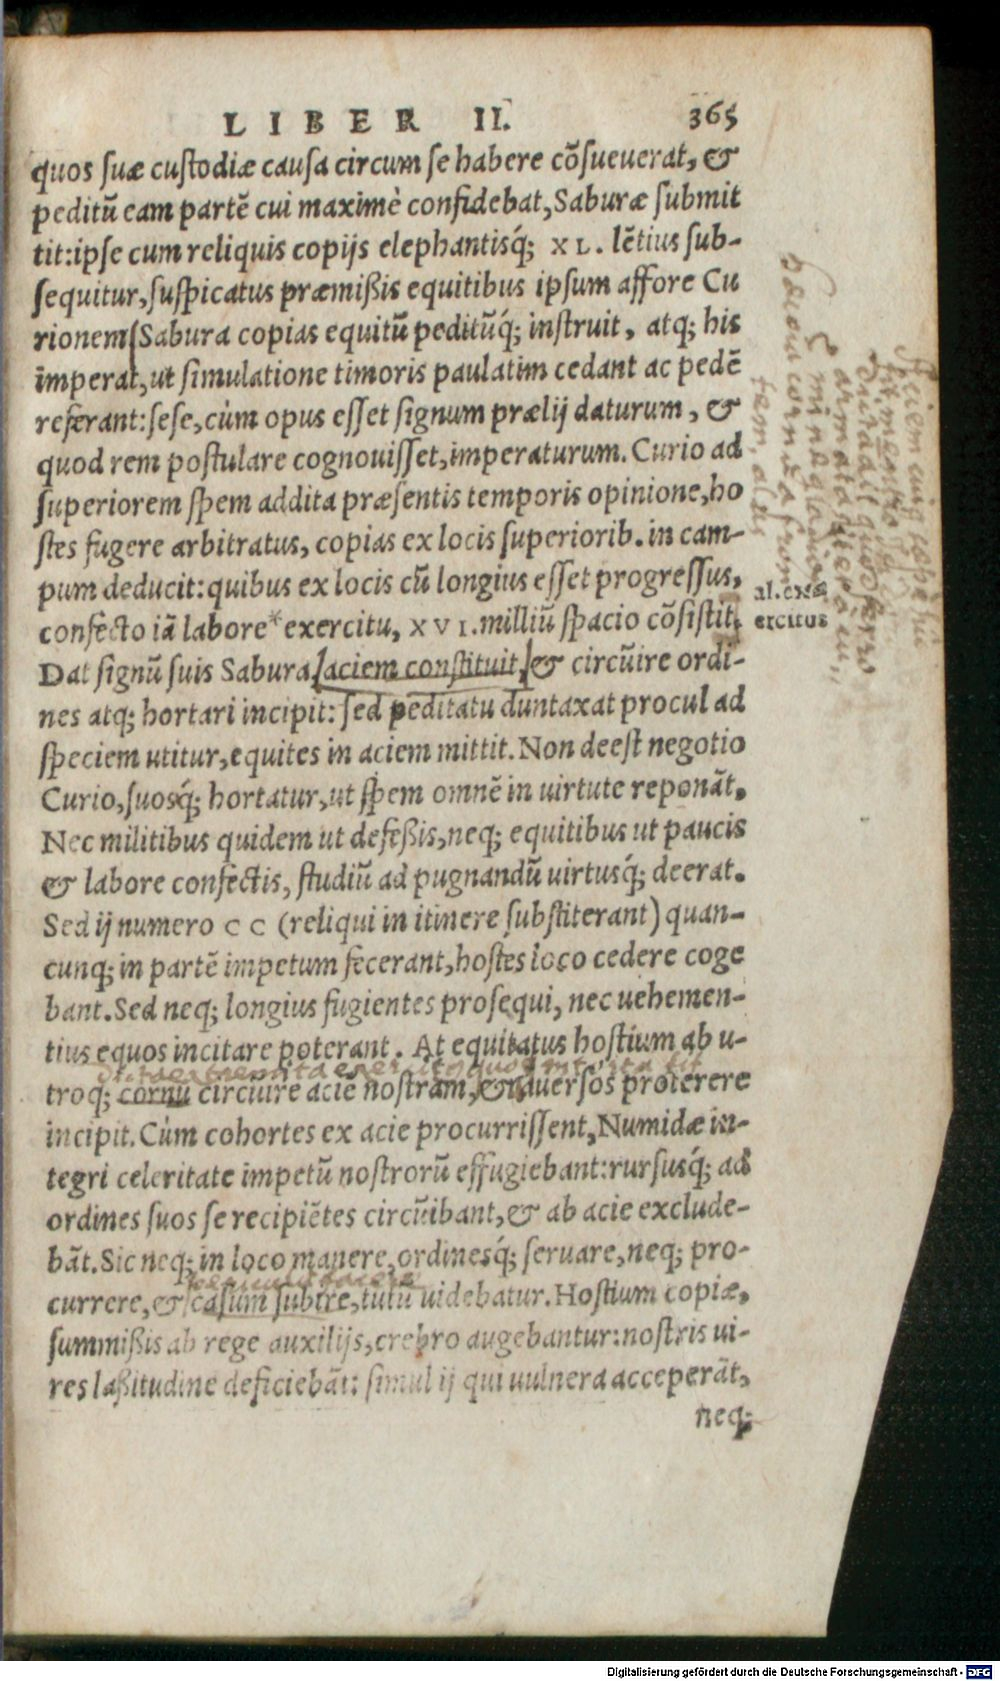 LIBER II. 365
quos suæ custodiæ causa circum se habere cōsueuerat, &
peditū eam partē cui maximè confidebat, Saburæ submit
tit: ipse cum reliquis copijs elephantisq́; XL. lētius sub-
sequitur, suspicatus præmißis equitibus ipsum affore Cu
rionem[Sabura copias equitū peditūq́; instruit, atq; his
imperat, ut simulatione timoris paulatim cedant ac pedē
referant: sese, cùm opus esset signum prælij daturum, &
quod rem postulare cognouisset, imperaturum. Curio ad
superiorem spem addita præsentis temporis opinione, ho
stes fugere arbitratus, copias ex locis superiorib. in cam-
pum deducit: quibus ex locis cū longius esset progressus,
confecto iā labore* exercitu, XVI. milliū spacio cōsistit.
al. exer
ercitus
Dat signū suis Sabura[aciem constituit,]& circūire ordi-
nes atq; hortari incipit: sed peditatu duntaxat procul ad
speciem utitur, equites in aciem mittit. Non deest negotio
Curio, suosq́; hortatur, ut spem omnē in uirtute reponāt.
Nec militibus quidem ut defeßis, neq; equitibus ut paucis
& labore confectis, studiū ad pugnandū uirtusq́; deerat.
Sed ij numero CC (reliqui in itinere substiterant) quan-
cunq; in partē impetum fecerant, hostes loco cedere coge
bant. Sed neq; longius fugientes prosequi, nec uehemen-
tius equos incitare poterant. At equitatus hostium ab u-
troq; cornu circuire aciē nostram, & auersos proterere
incipit. Cùm cohortes ex acie procurrissent, Numidæ in-
tegri celeritate impetū nostrorū effugiebant: rursusq́; ad
ordines suos se recipiētes circūibant, & ab acie exclude-
bāt. Sic neq; in loco manere, ordinesq́; seruare, neq; pro-
currere, & casum subire, tutū uidebatur. Hostium copiæ,
summißis ab rege auxilijs, crebro augebantur: nostris ui-
res laßitudine deficiebāt: simul ij qui uulnera acceperāt,
neq;
Digitalisierung gefördert durch die Deutsche Forschungsgemeinschaft - DFG